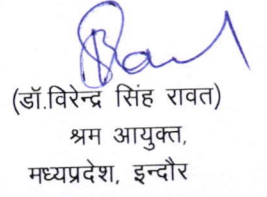 (डॉ.विरेन्द्र सिंह रावत)
श्रम आयुक्त,
मध्यप्रदेश, इन्दौर